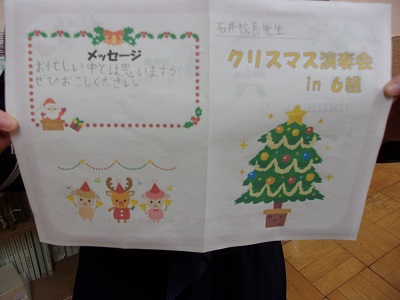 メッセージ
お忙しい中とは思いますが
ぜひおこしください。
石井校長先生
クリスマス演奏会
in 6組